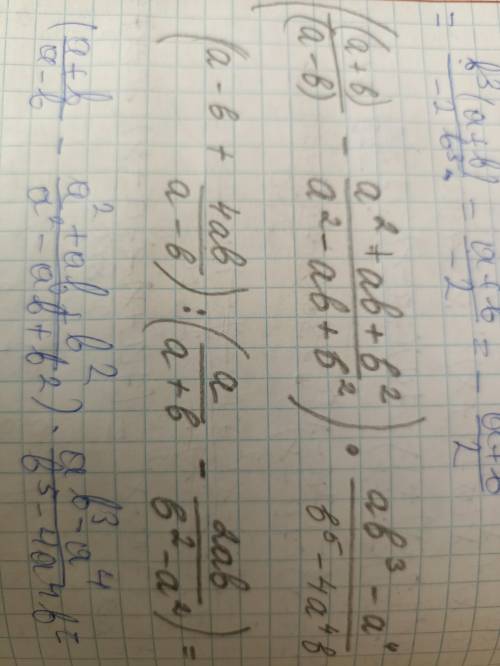 = b³(a+b) / -2b³ = a+b / -2 = - a+b / 2
((a+b) / (a-b) - a²+ab+b² / a²-ab+b²) · ab³-a⁴ / b⁵-4a⁴b
(a-b + 4ab / a-b) : (a / a+b - 2ab / b²-a²) =
(a+b / a-b - a²+ab+b² / a²-ab+b²) · ab³-a⁴ / b⁵-4a⁴b =